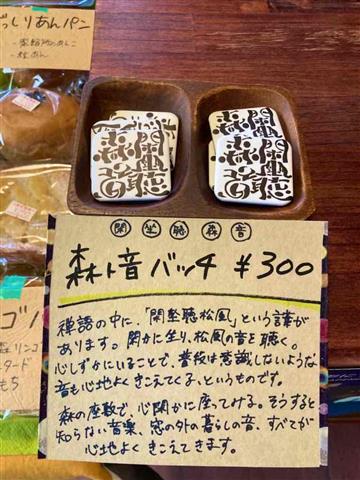 っしりあんパン
閑坐聴森音
森ト音バッチ ¥300
禅語の中に、「閑坐聴松風」という言葉が
あります。閑かに坐り、松風の音を聴く。
心しずかにいることで、普段は意識しないような
音も心地よくきこえてくる、というものです。
森の座敷で、心閑かに座ってみる。そうすると
知らない音楽、窓の外の暮らしの音、すべてが
心地よくきこえてきます。
ゴパ
リンゴ
タード
もち